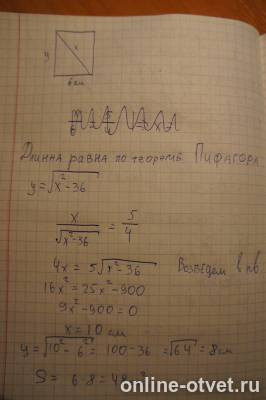 y
x
6 см
Длинна равна по теореме Пифагора
y=√x²-36
x/√x²-36 = 5/4
4x = 5√x²-36 Возведем в кв
16x²=25x²-900
9x²-900=0
x=10 см
y=√10²-6²=100-36=√64=8см
S= 6·8=48
online-otvet.ru